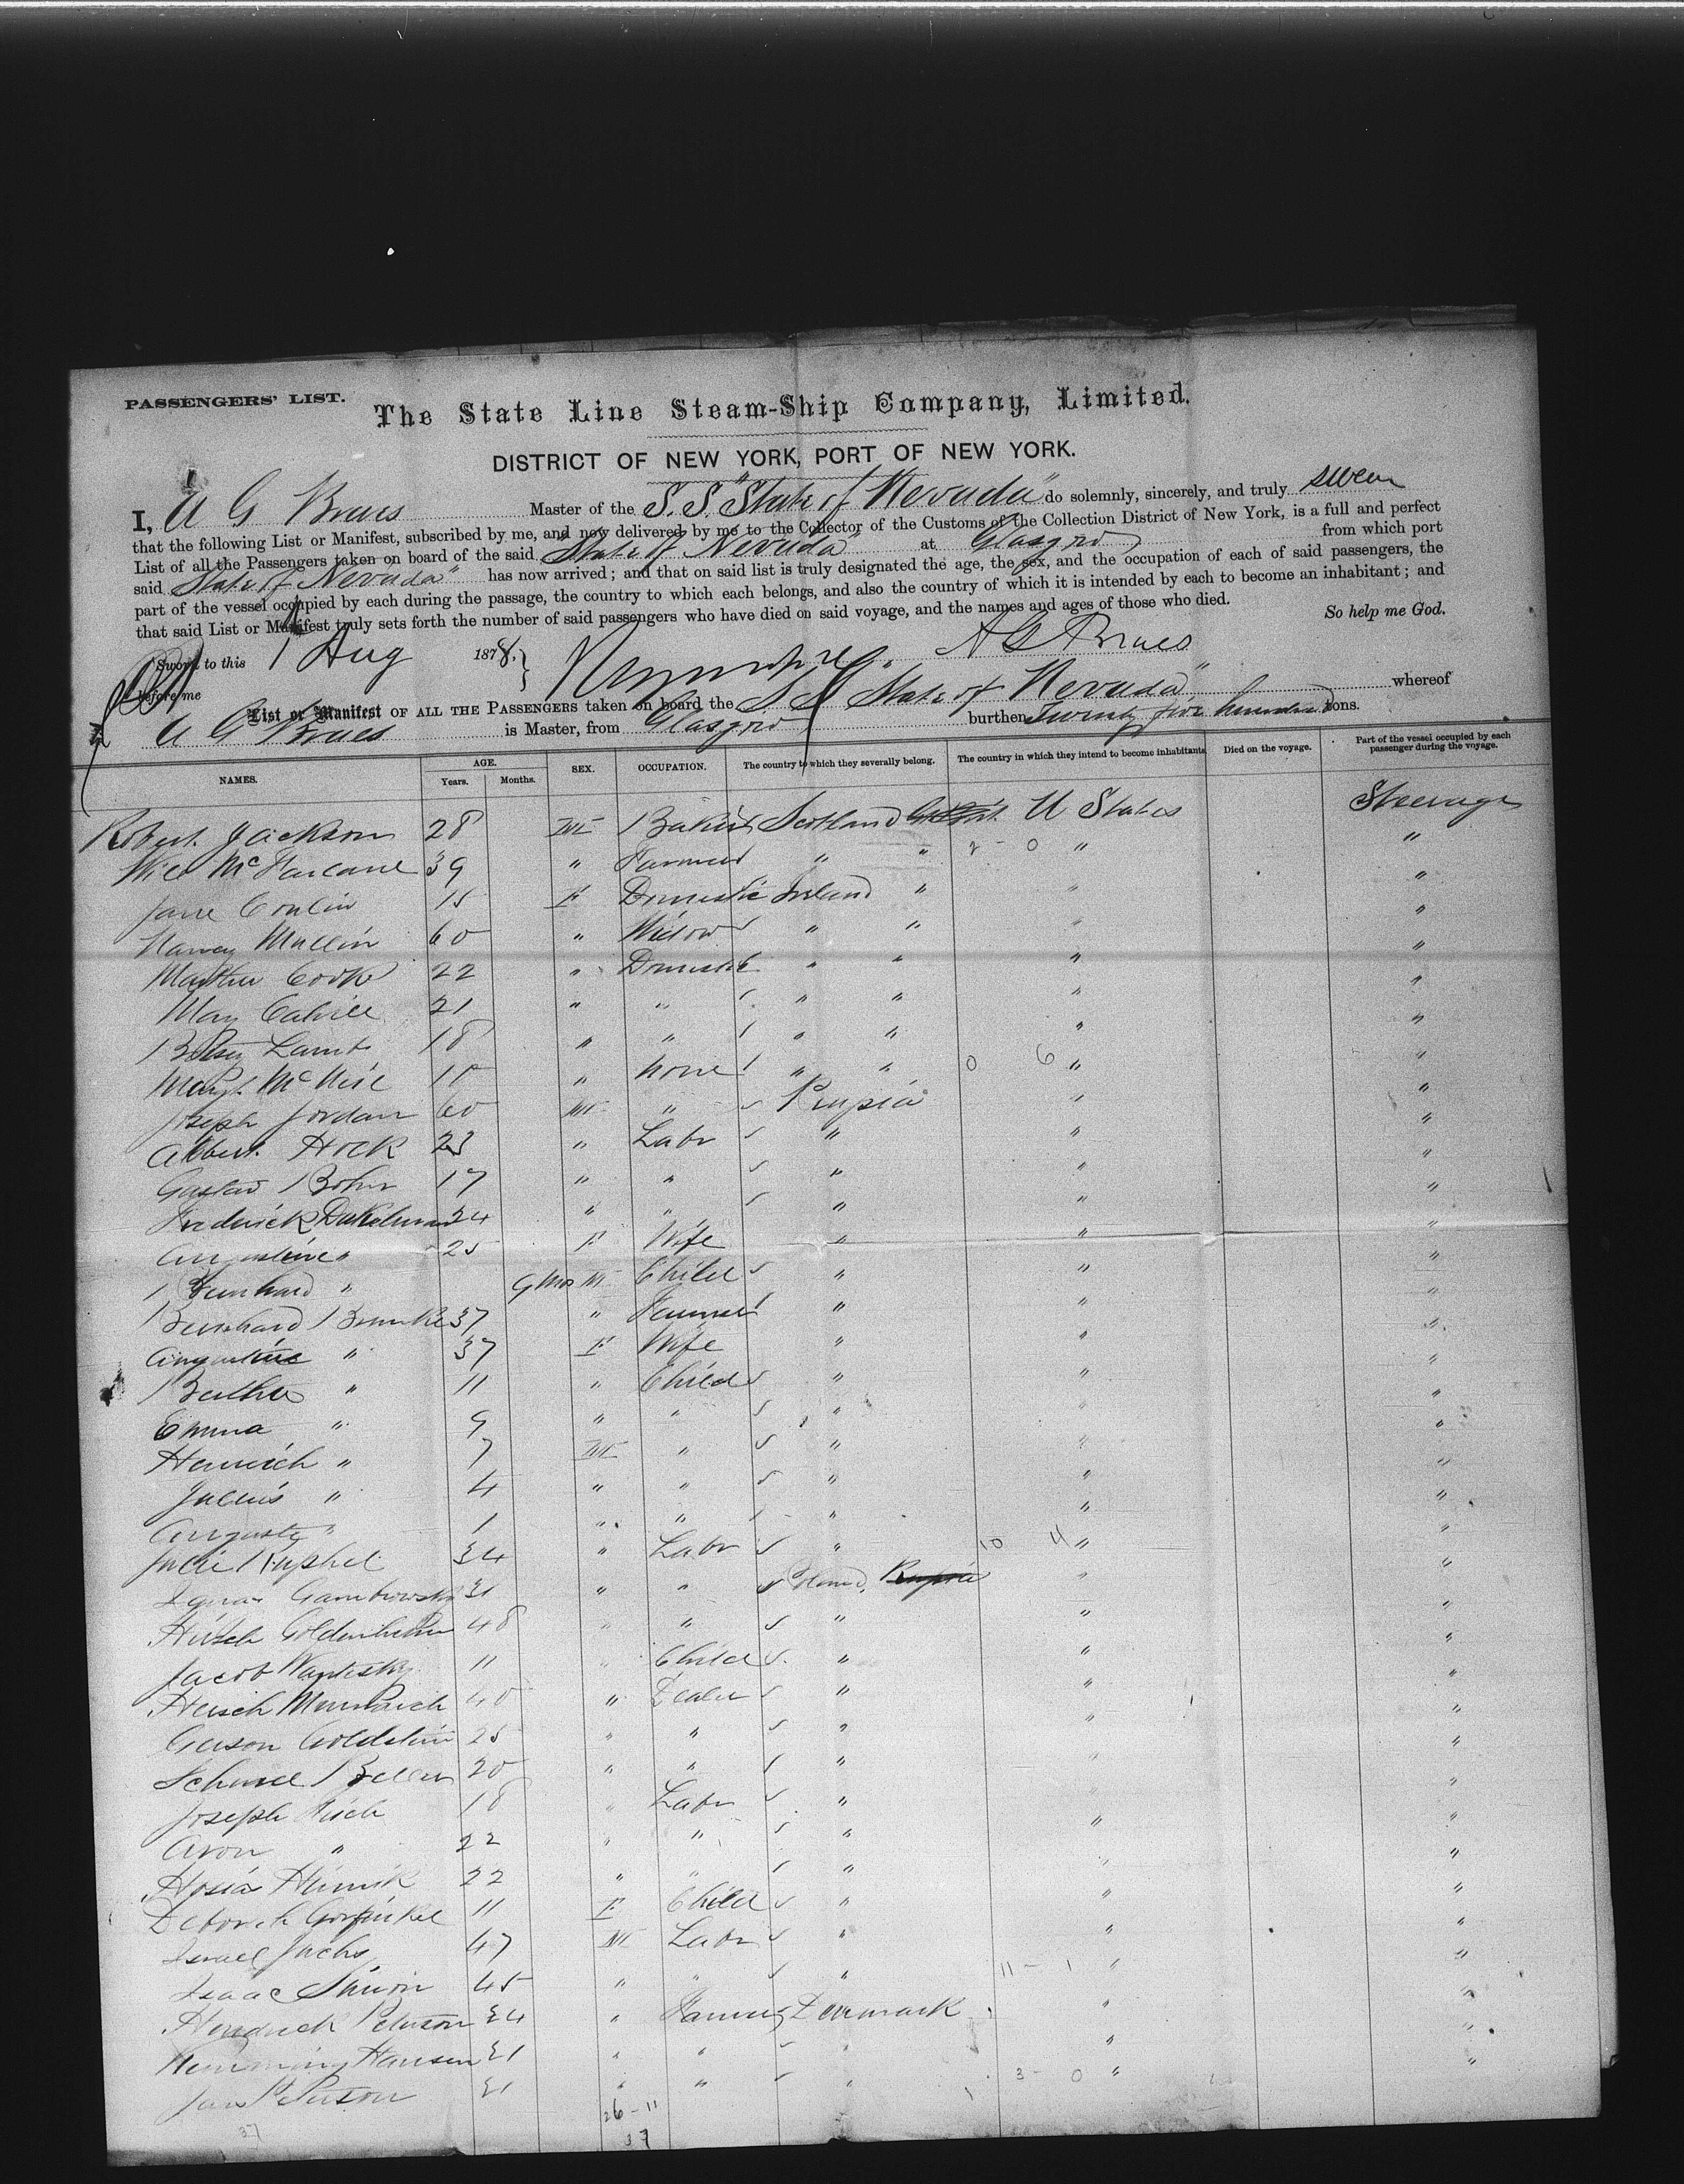 PASSENGERS' LIST.
The State Line Steam-Ship Company, Limited.
DISTRICT OF NEW YORK, PORT OF NEW YORK.
I, A G Braes Master of the S.S. "State of Nevada" do solemnly, sincerely, and truly swear
that the following List or Manifest, subscribed by me, and now delivered by me to the Collector of the Customs of the Collection District of New York, is a full and perfect
List of all the Passengers taken on board of the said "State of Nevada" at Glasgow from which port
said "State of Nevada" has now arrived; and that on said list is truly designated the age, the sex, and the occupation of each of said passengers, the
part of the vessel occupied by each during the passage, the country to which each belongs, and also the country of which it is intended by each to become an inhabitant; and
that said List or Manifest truly sets forth the number of said passengers who have died on said voyage, and the names and ages of those who died. So help me God.
Sworn to this 1 Aug 1878. A G Braes
before me
List or Manifest OF ALL THE PASSENGERS taken on board the S S State of Nevada" whereof
A G Braes is Master, from Glasgow burthen Twenty five hundred tons.
NAMES. AGE. Years. Months. SEX. OCCUPATION. The country to which they severally belong. The country in which they intend to become inhabitants. Died on the voyage. Part of the vessel occupied by each passenger during the voyage.
Robert Jackson 28 M Baker Scotland U States Steerage
Will McFarlane 39 " Farmer " " 2 - 0 " "
Jane Conlin 15 F Domestic Ireland " " "
Nancy Mullin 60 " Widow " " " "
Martha Cook 22 " Domestic " " " "
Mary Cahill 21 " " " " " "
Betsy Lamb 18 " " " " " "
Margt McNeil 10 " None " " 0 6 " "
Joseph Jordan 60 M " Prussia " "
Albert Hock 23 " Labr " " "
Gustav Bohn 17 " " " " "
Frederick 34 " " " " "
Augustine " 25 F Wife " " "
Bernhard " 9 Mos M Child " " "
Bernhard 37 " Farmer " " "
Augustine " 37 F Wife " " "
Bertha " 11 " Child " " "
Emma " 9 " " " " "
Heinrich " 7 M " " " "
Julius " 4 " " " " "
August " 1 " " " " "
34 " Labr " 10 4 " "
31 " " Poland, Russia " "
Hirsch 48 " " " " "
Jacob 11 " Child " " "
Hersch 40 " Dealer " " "
Gerson Goldstein 25 " " " " "
20 " " " " "
Joseph 18 " Labr " " "
Aron " 22 " " " " "
22 " " " " "
Deborah 11 F Child " " "
Israel Fuchs 47 M Labr " " "
Isaac Simon 45 " " " 11 - 1 " "
Hendrick Peterson 34 " Farmer Denmark " "
Hansen 31 " " " " "
Jans Peterson 31 " " " 3 - 0 " "
26 - 11
37 37